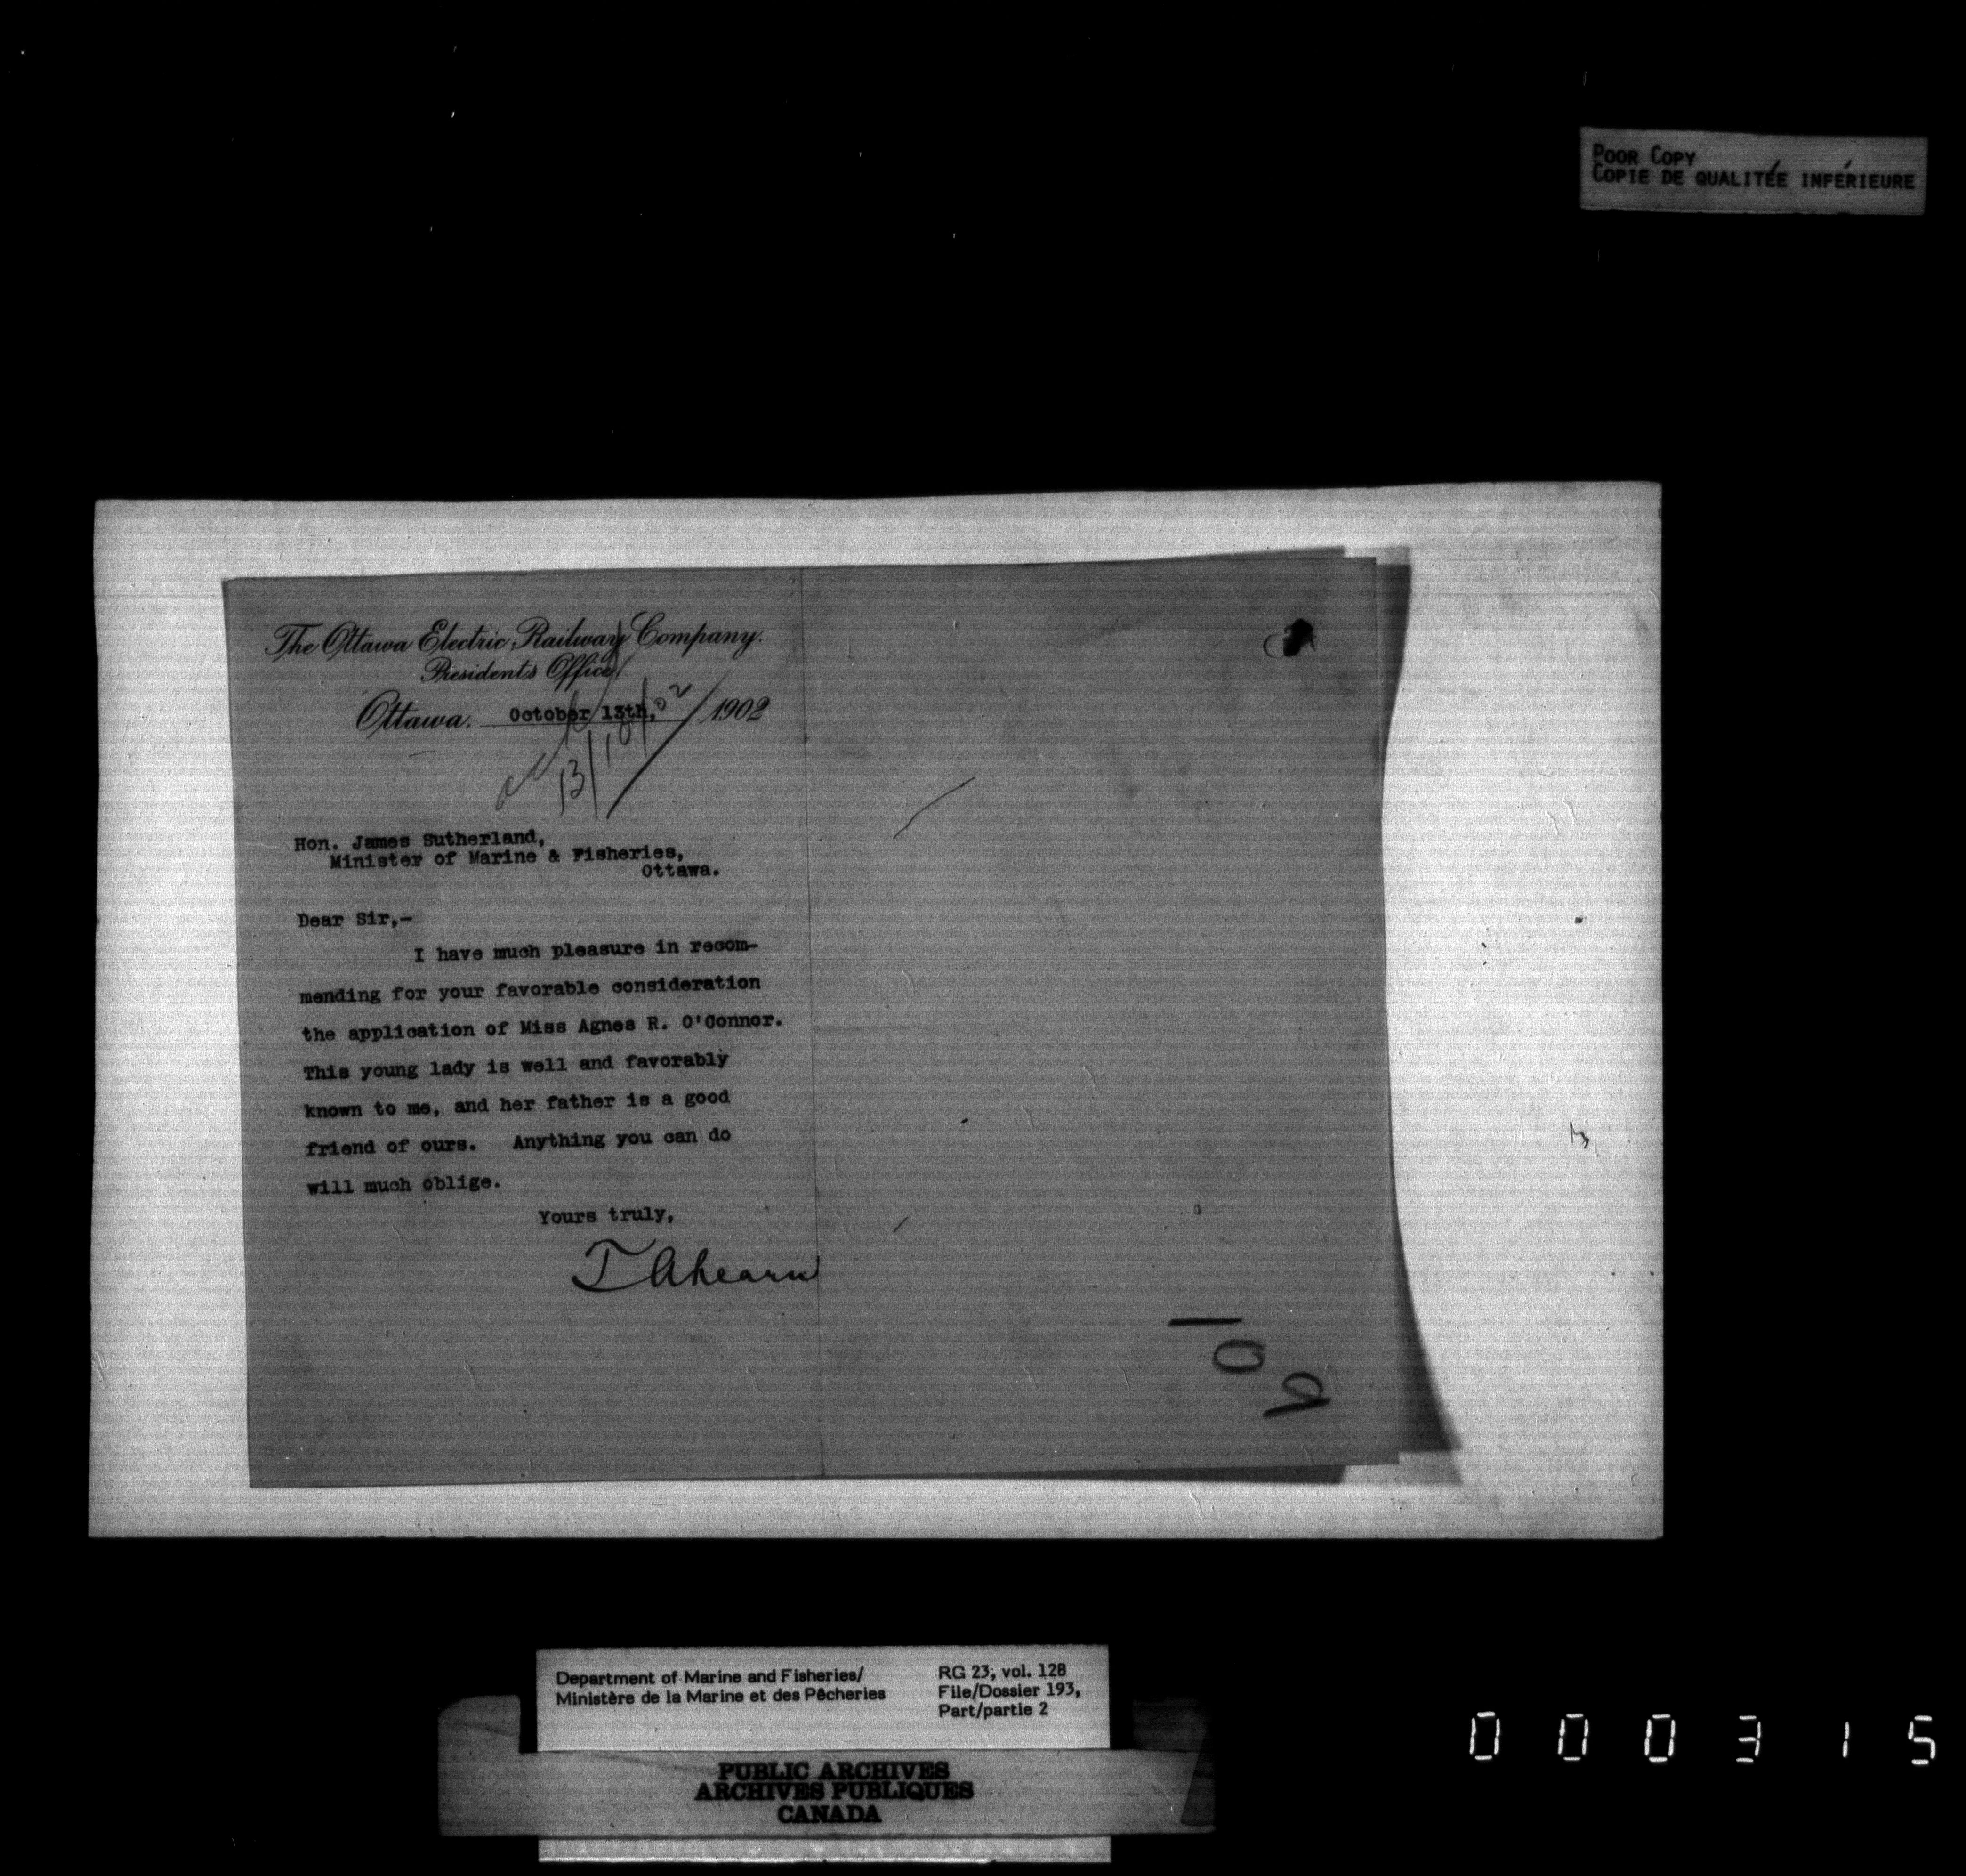 POOR COPY
COPIE DE QUALITÉE INFÉRIEURE
The Ottawa Electric Railway Company.
President's Office
Ottawa. October 13th, 1902
ack
13/10/02
Hon. James Sutherland,
Minister of Marine & Fisheries,
Ottawa.
Dear Sir,-
I have much pleasure in recom-
mending for your favorable consideration
the application of Miss Agnes R. O'Connor.
This young lady is well and favorably
known to me, and her father is a good
friend of ours. Anything you can do
will much oblige.
Yours truly,
T Ahearn
Department of Marine and Fisheries/
Ministère de la Marine et des Pêcheries
RG 23, vol. 128
File/Dossier 193,
Part/partie 2
PUBLIC ARCHIVES
ARCHIVES PUBLIQUES
CANADA
000315